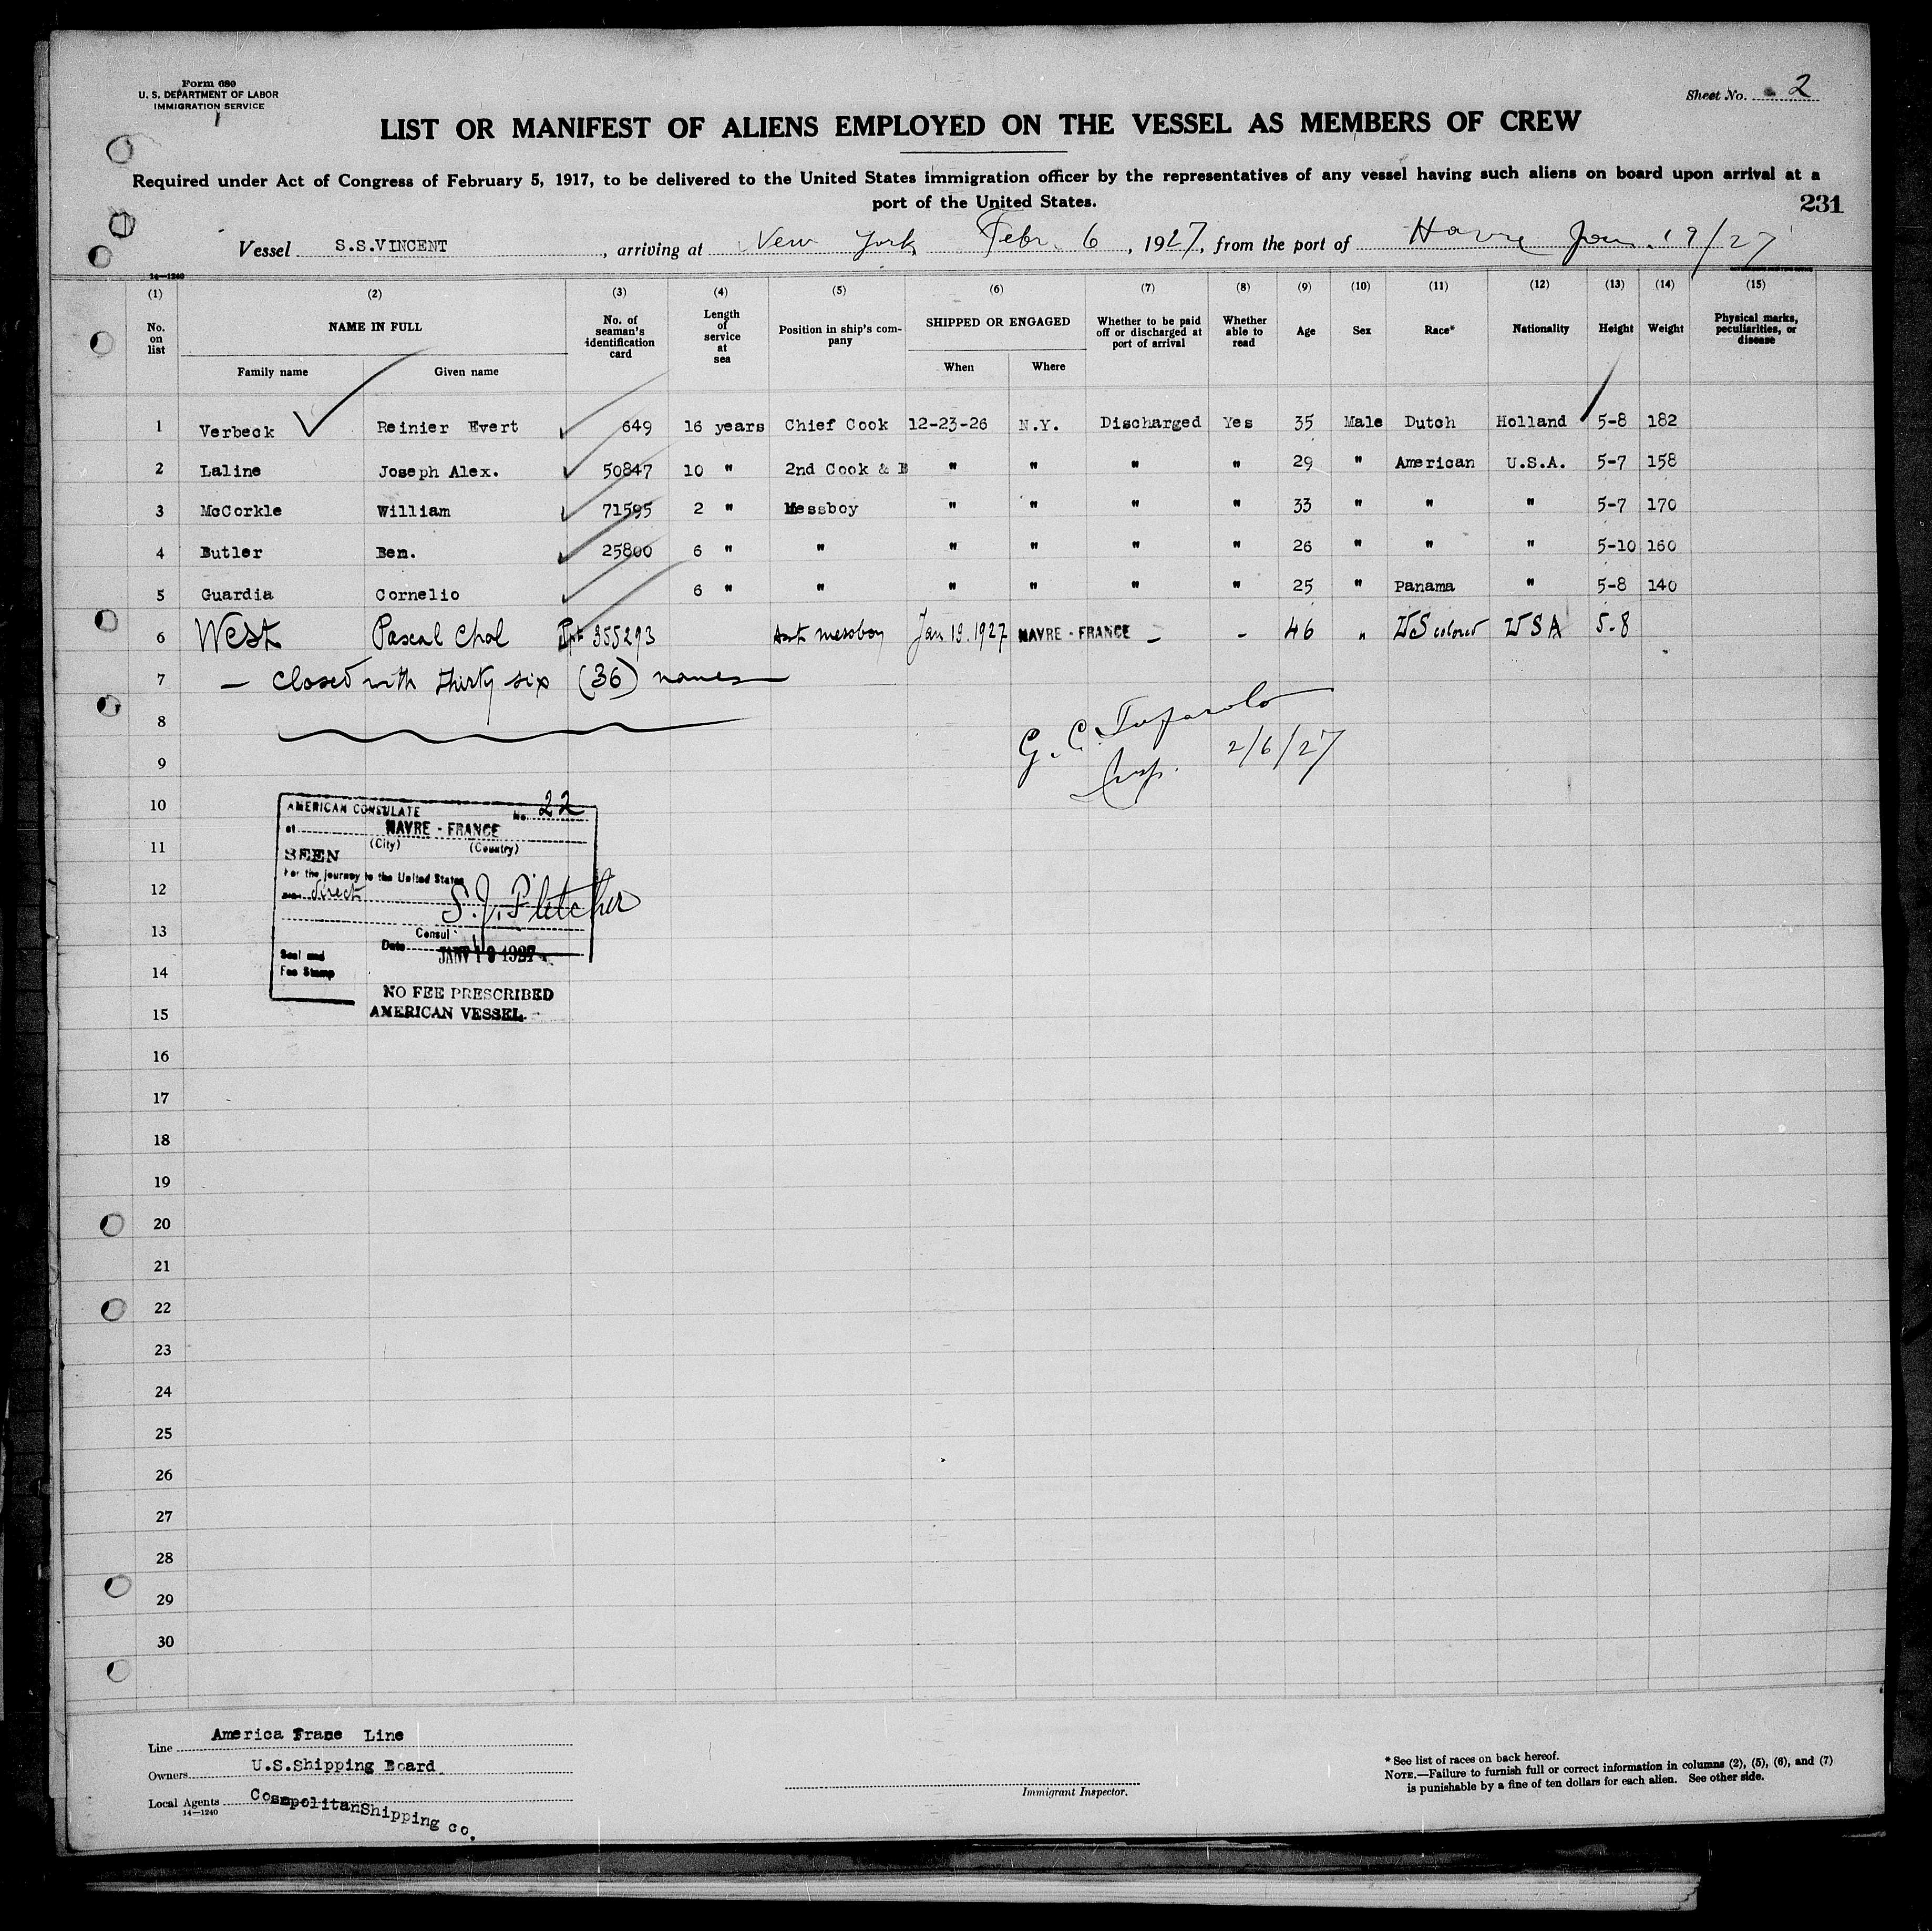 Form 680
U. S. DEPARTMENT OF LABOR
IMMIGRATION SERVICE
Sheet No. 2
LIST OR MANIFEST OF ALIENS EMPLOYED ON THE VESSEL AS MEMBERS OF CREW
Required under Act of Congress of February 5, 1917, to be delivered to the United States immigration officer by the representatives of any vessel having such aliens on board upon arrival at a
port of the United States.
231
Vessel S.S.VINCENT, arriving at New York Febr. 6, 1927, from the port of Havre Jan. 19/27
14—1240
(1) (2) (3) (4) (5) (6) (7) (8) (9) (10) (11) (12) (13) (14) (15)
No. on list NAME IN FULL No. of seaman's identification card Length of service at sea Position in ship's company SHIPPED OR ENGAGED Whether to be paid off or discharged at port of arrival Whether able to read Age Sex Race* Nationality Height Weight Physical marks, peculiarities, or disease
Family name Given name When Where
1 Verbeck Reinier Evert 649 16 years Chief Cook 12-23-26 N.Y. Discharged Yes 35 Male Dutch Holland 5-8 182
2 Laline Joseph Alex. 50847 10 " 2nd Cook & B " " " " 29 " American U.S.A. 5-7 158
3 McCorkle William 71595 2 " Messboy " " " " 33 " " " 5-7 170
4 Butler Ben. 25800 6 " " " " " " 26 " " " 5-10 160
5 Guardia Cornelio 6 " " " " " " 25 " Panama " 5-8 140
6 West Pascal Chal 355293 Ast messboy Jan 19. 1927 HAVRE - FRANCE - - 46 " US colored USA 5-8
7 — closed with thirty six (36) names —
8
G. C.
9
Insp. 2/6/27
10
AMERICAN CONSULATE No. 22
at HAVRE - FRANCE
11
(City) (Country)
SEEN
For the journey to the United States
12
direct
S. J. Fletcher
13
Consul
Date JANV 19 1927
Seal and
Fee Stamp
14
NO FEE PRESCRIBED
AMERICAN VESSEL
15
16
17
18
19
20
21
22
23
24
25
26
27
28
29
30
Line America Frace Line
Owners U.S.Shipping Board
Local Agents CosmpolitanShipping co.
14—1240
Immigrant Inspector.
* See list of races on back hereof.
NOTE.—Failure to furnish full or correct information in columns (2), (5), (6), and (7)
is punishable by a fine of ten dollars for each alien. See other side.